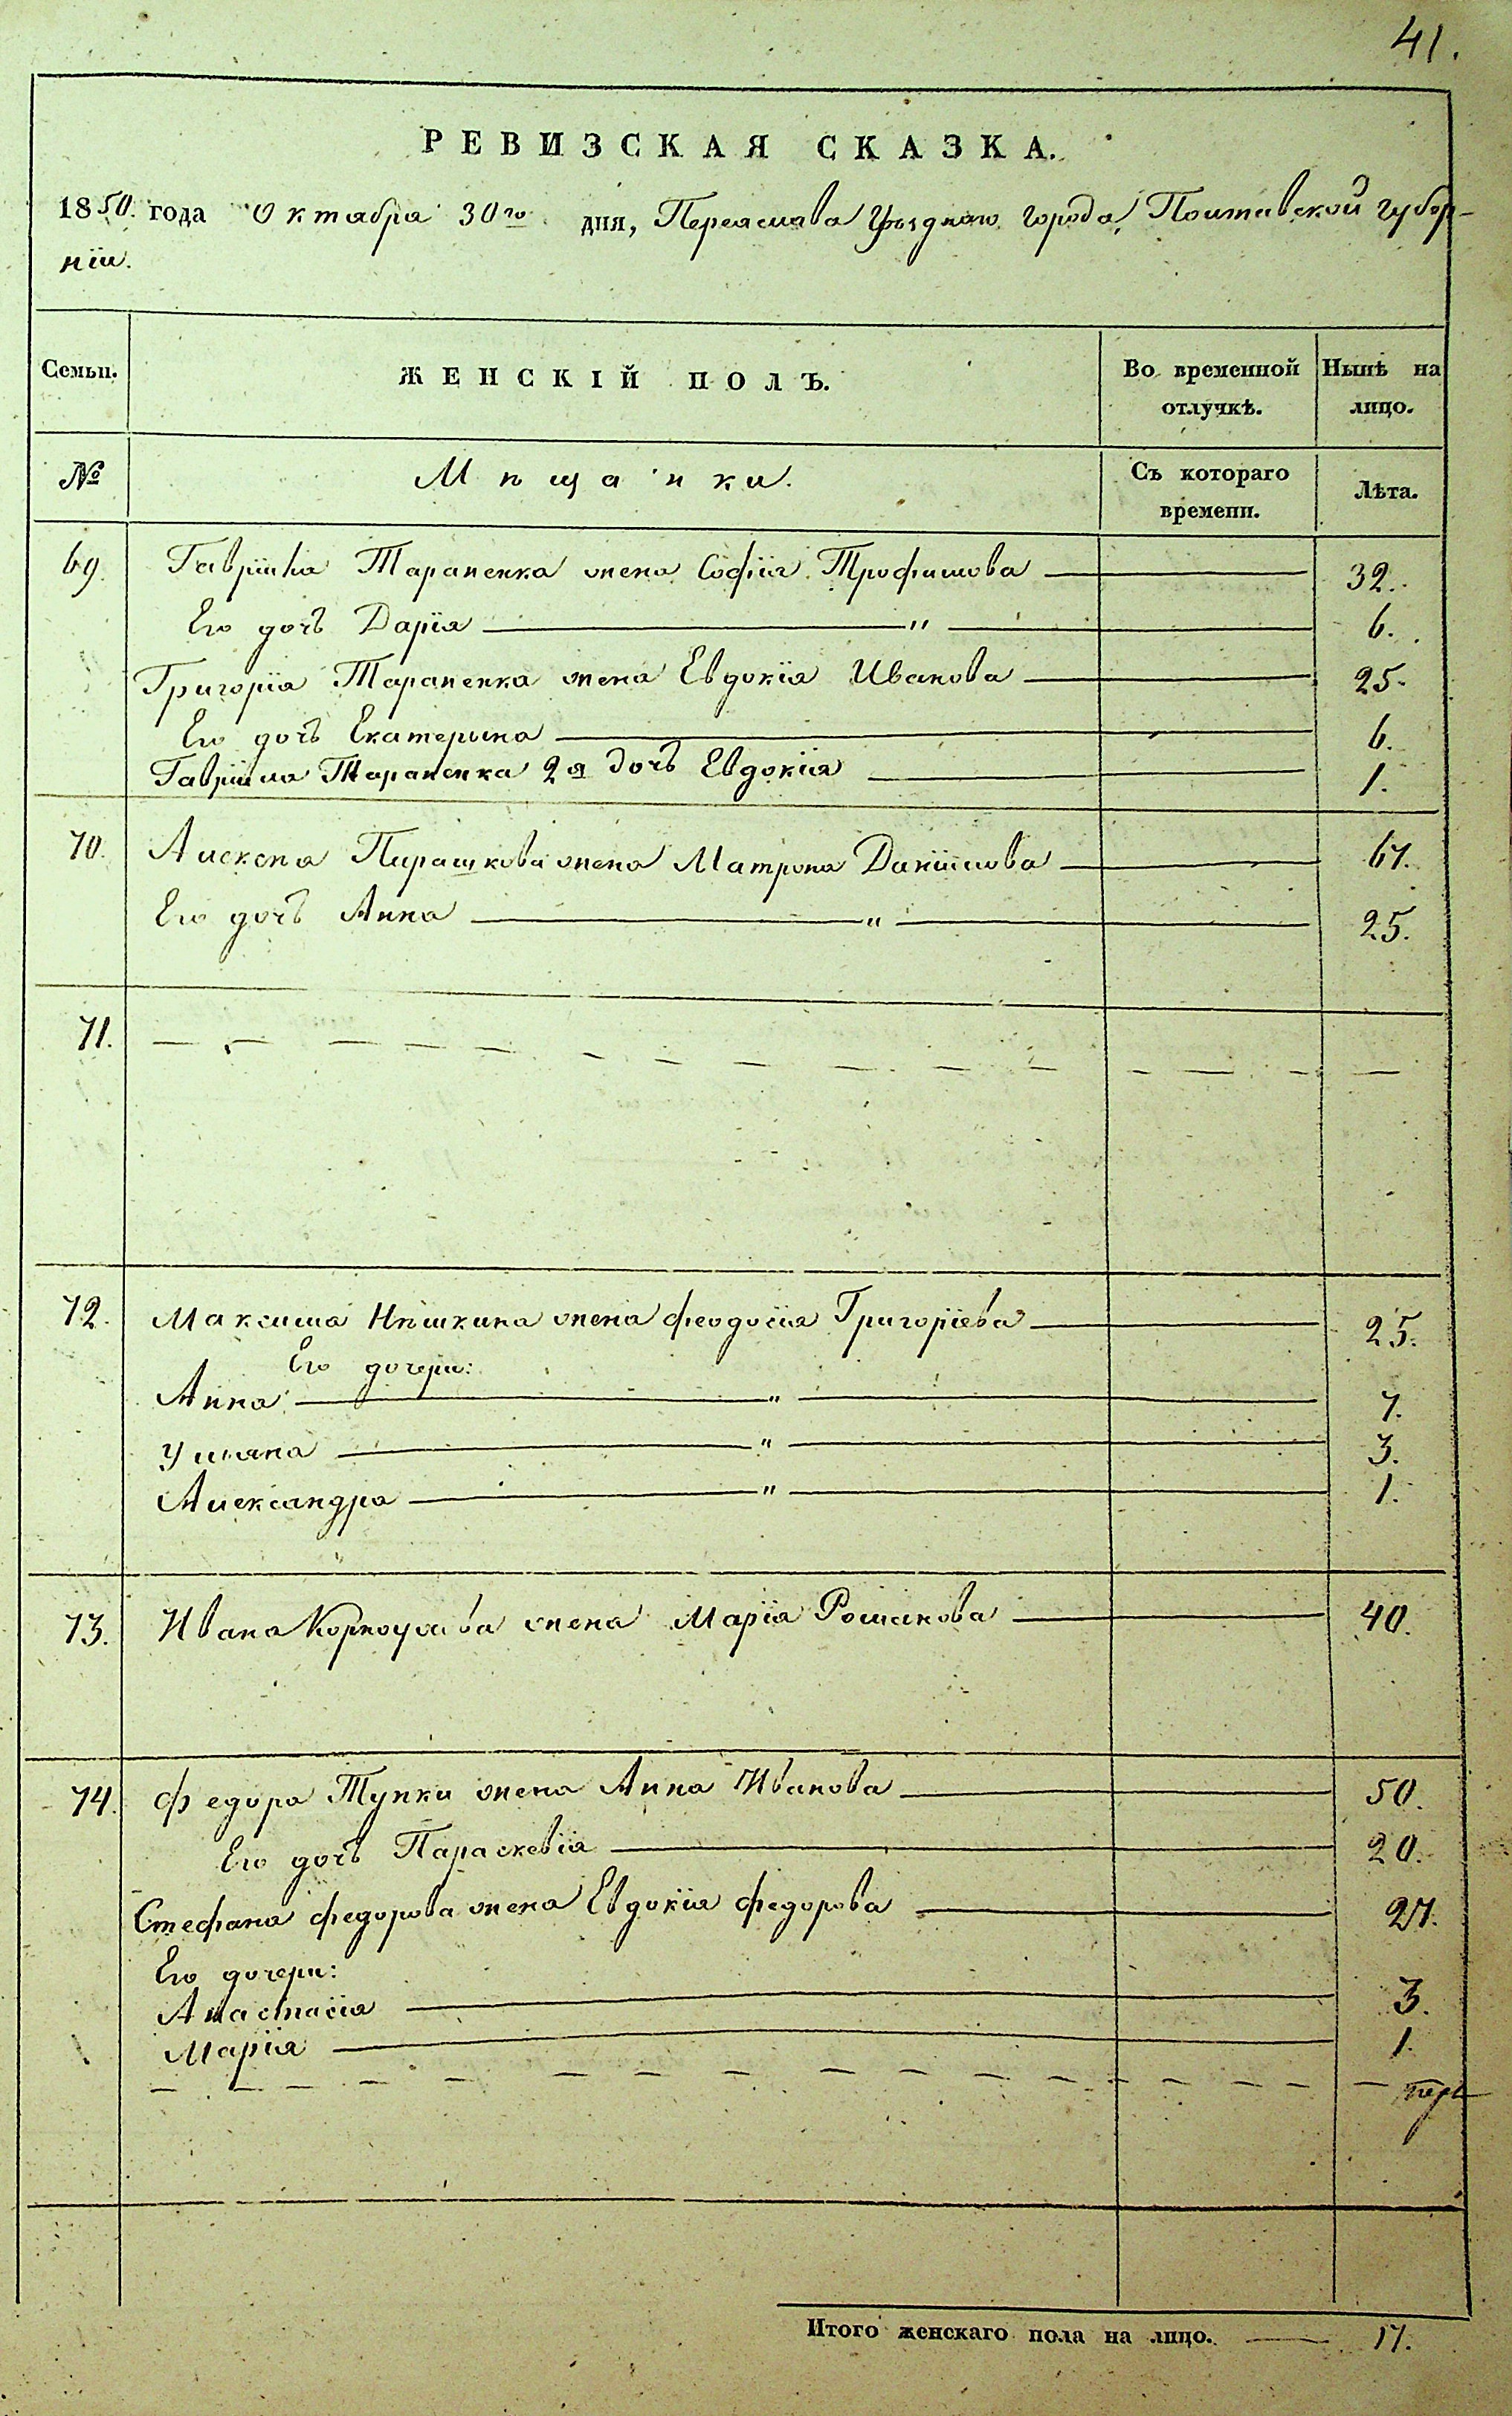 41.
РЕВИЗСКАЯ СКАЗКА.
1850. года Октября 30го дня, Переяслава Уѣзднаго города, Полтавской губер-
нiи.
Семьи.
ЖЕНСКIЙ ПОЛЪ.
Во временной отлучкѣ.
Нынѣ на лицо.
№
Мѣщанки.
Съ котораго времени.
Лѣта.
69. Гаврiила Тараненка жена Софiя Трофимова 32.
Его дочь Дарiя " 6.
Григорiя Тараненка жена Евдокiя Иванова 25.
Его дочь Екатерина 6.
Гаврiила Тараненка 2я дочь Евдокiя 1.
70. Алексея жена Матрона Данiилова 67.
Его дочь Анна " 25.
71.
72. Максима жена Феодосiя Григорiева 25.
Его дочери:
Анна " 7.
Улiяна " 3.
Александра " 1.
73. Ивана жена Марiя Романова 40.
74. Федора Тупки жена Анна Иванова 50.
Его дочь Параскевiя 20.
Стефана Федорова жена Евдокiя Федорова 27.
Его дочери:
Анастасiя 3.
Марiя 1.
Итого женскаго пола на лицо. 17.